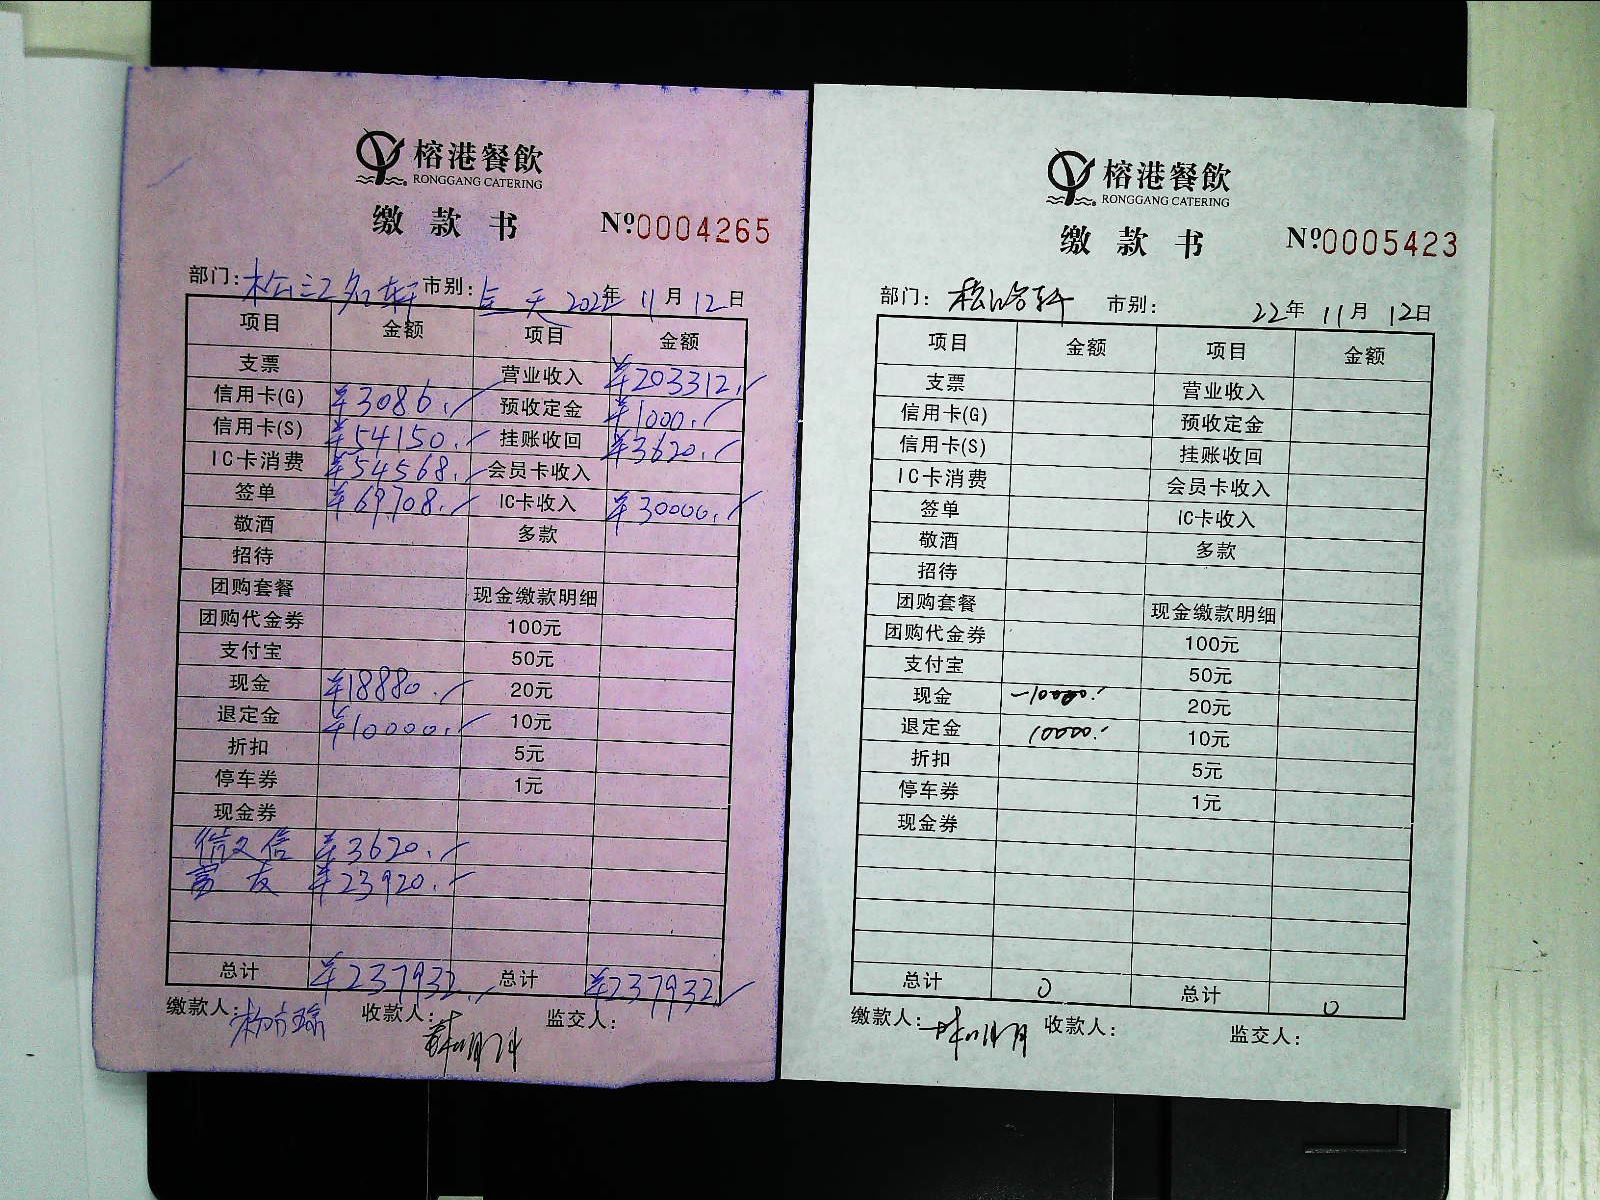 榕港餐飲
RONGGANG CATERING
缴款书 Nº0004265
部门: 松江名轩 市别: 全天 2022年11月12日
项目 金额 项目 金额
支票 营业收入 ¥203312.
信用卡(G) ¥3086. 预收定金 ¥1000.
信用卡(S) ¥54150. 挂账收回 ¥3620.
IC卡消费 ¥54568. 会员卡收入
签单 ¥69708. IC卡收入 ¥30000.
敬酒 多款
招待
团购套餐 现金缴款明细
团购代金券 100元
支付宝 50元
现金 ¥18880. 20元
退定金 ¥10000. 10元
折扣 5元
停车券 1元
现金券
¥3620.
富友 ¥23920.
总计 ¥237932. 总计 ¥237932.
缴款人: 收款人: 监交人:
榕港餐飲
RONGGANG CATERING
缴款书 Nº0005423
部门: 市别: 22年11月12日
项目 金额 项目 金额
支票 营业收入
信用卡(G) 预收定金
信用卡(S) 挂账收回
IC卡消费 会员卡收入
签单 IC卡收入
敬酒 多款
招待
团购套餐 现金缴款明细
团购代金券 100元
支付宝 50元
现金 -10000. 20元
退定金 10000. 10元
折扣 5元
停车券 1元
现金券
总计 0 总计 0
缴款人: 收款人: 监交人: